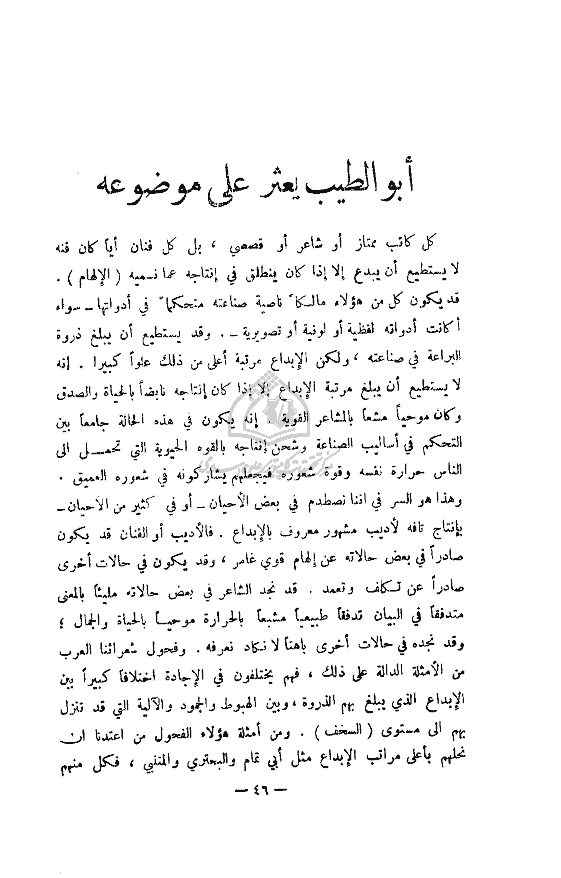 أبو الطيب يعثر على موضوعه
كل كاتب ممتاز أو شاعر أو قصصي ، بل كل فنان أياً كان فنه
لا يستطيع أن يبدع إلا إذا كان ينطلق في إنتاجه عما نسميه ( الإلهام ) .
قد يكون كل من هؤلاء مالكاً ناصية صناعته متحكماً في أدواتها ــ سواء
أكانت أدواته لفظية أو لونية أو تصويرية ــ . وقد يستطيع أن يبلغ ذروة
البراعة في صناعته ، ولكن الإبداع مرتبة أعلى من ذلك علواً كبيرا . إنه
لا يستطيع أن يبلغ مرتبة الإبداع إلا إذا كان إنتاجه نابضاً بالحياة والصدق
وكان موحياً مشعاً بالمشاعر القوية . إنه يكون في هذه الحالة جامعاً بين
التحكم في أساليب الصناعة وشحن إنتاجه بالقوه الحيوية التي تحمـــل الى
الناس حرارة نفسه وقوة شعوره فيجعلهم يشاركونه في شعوره العميق .
وهذا هو السر في اننا نصطدم في بعض الأحيان ــ أو في كثير من الاحيان ــ
بإنتاج تافه لأديب مشهور معروف بالإبداع . فالأديب أو الفنان قد يكون
صادراً في بعض حالاته عن إلهام قوي غامر ، وقد يكون في حالات أخرى
صادراً عن تكلف وتعمد . قد نجد الشاعر في بعض حالاته مليئاً بالمعنى
متدفقاً في البيان تدفقاً طبيعياً مشبعاً بالحرارة موحيـاً بالحياة والجمال ؛
وقد نجده في حالات أخرى باهتاً لا نكاد نعرفه . وفحول شعرائنا العرب
من الأمثلة الدالة على ذلك ، فهم يختلفون في الإجادة اختلافاً كبيراً بين
الإبداع الذي يبلغ بهم الذروة ، وبين الهبوط والجمود والآلية التي قد تنزل
بهم الى مستوى ( السخف ) . ومن أمثلة هؤلاء الفحول من اعتدنا ان
نحلهم بأعلى مراتب الإبداع مثل أبي تمام والبحتري والمتنبي ، فكل منهم
— ٤٦ —